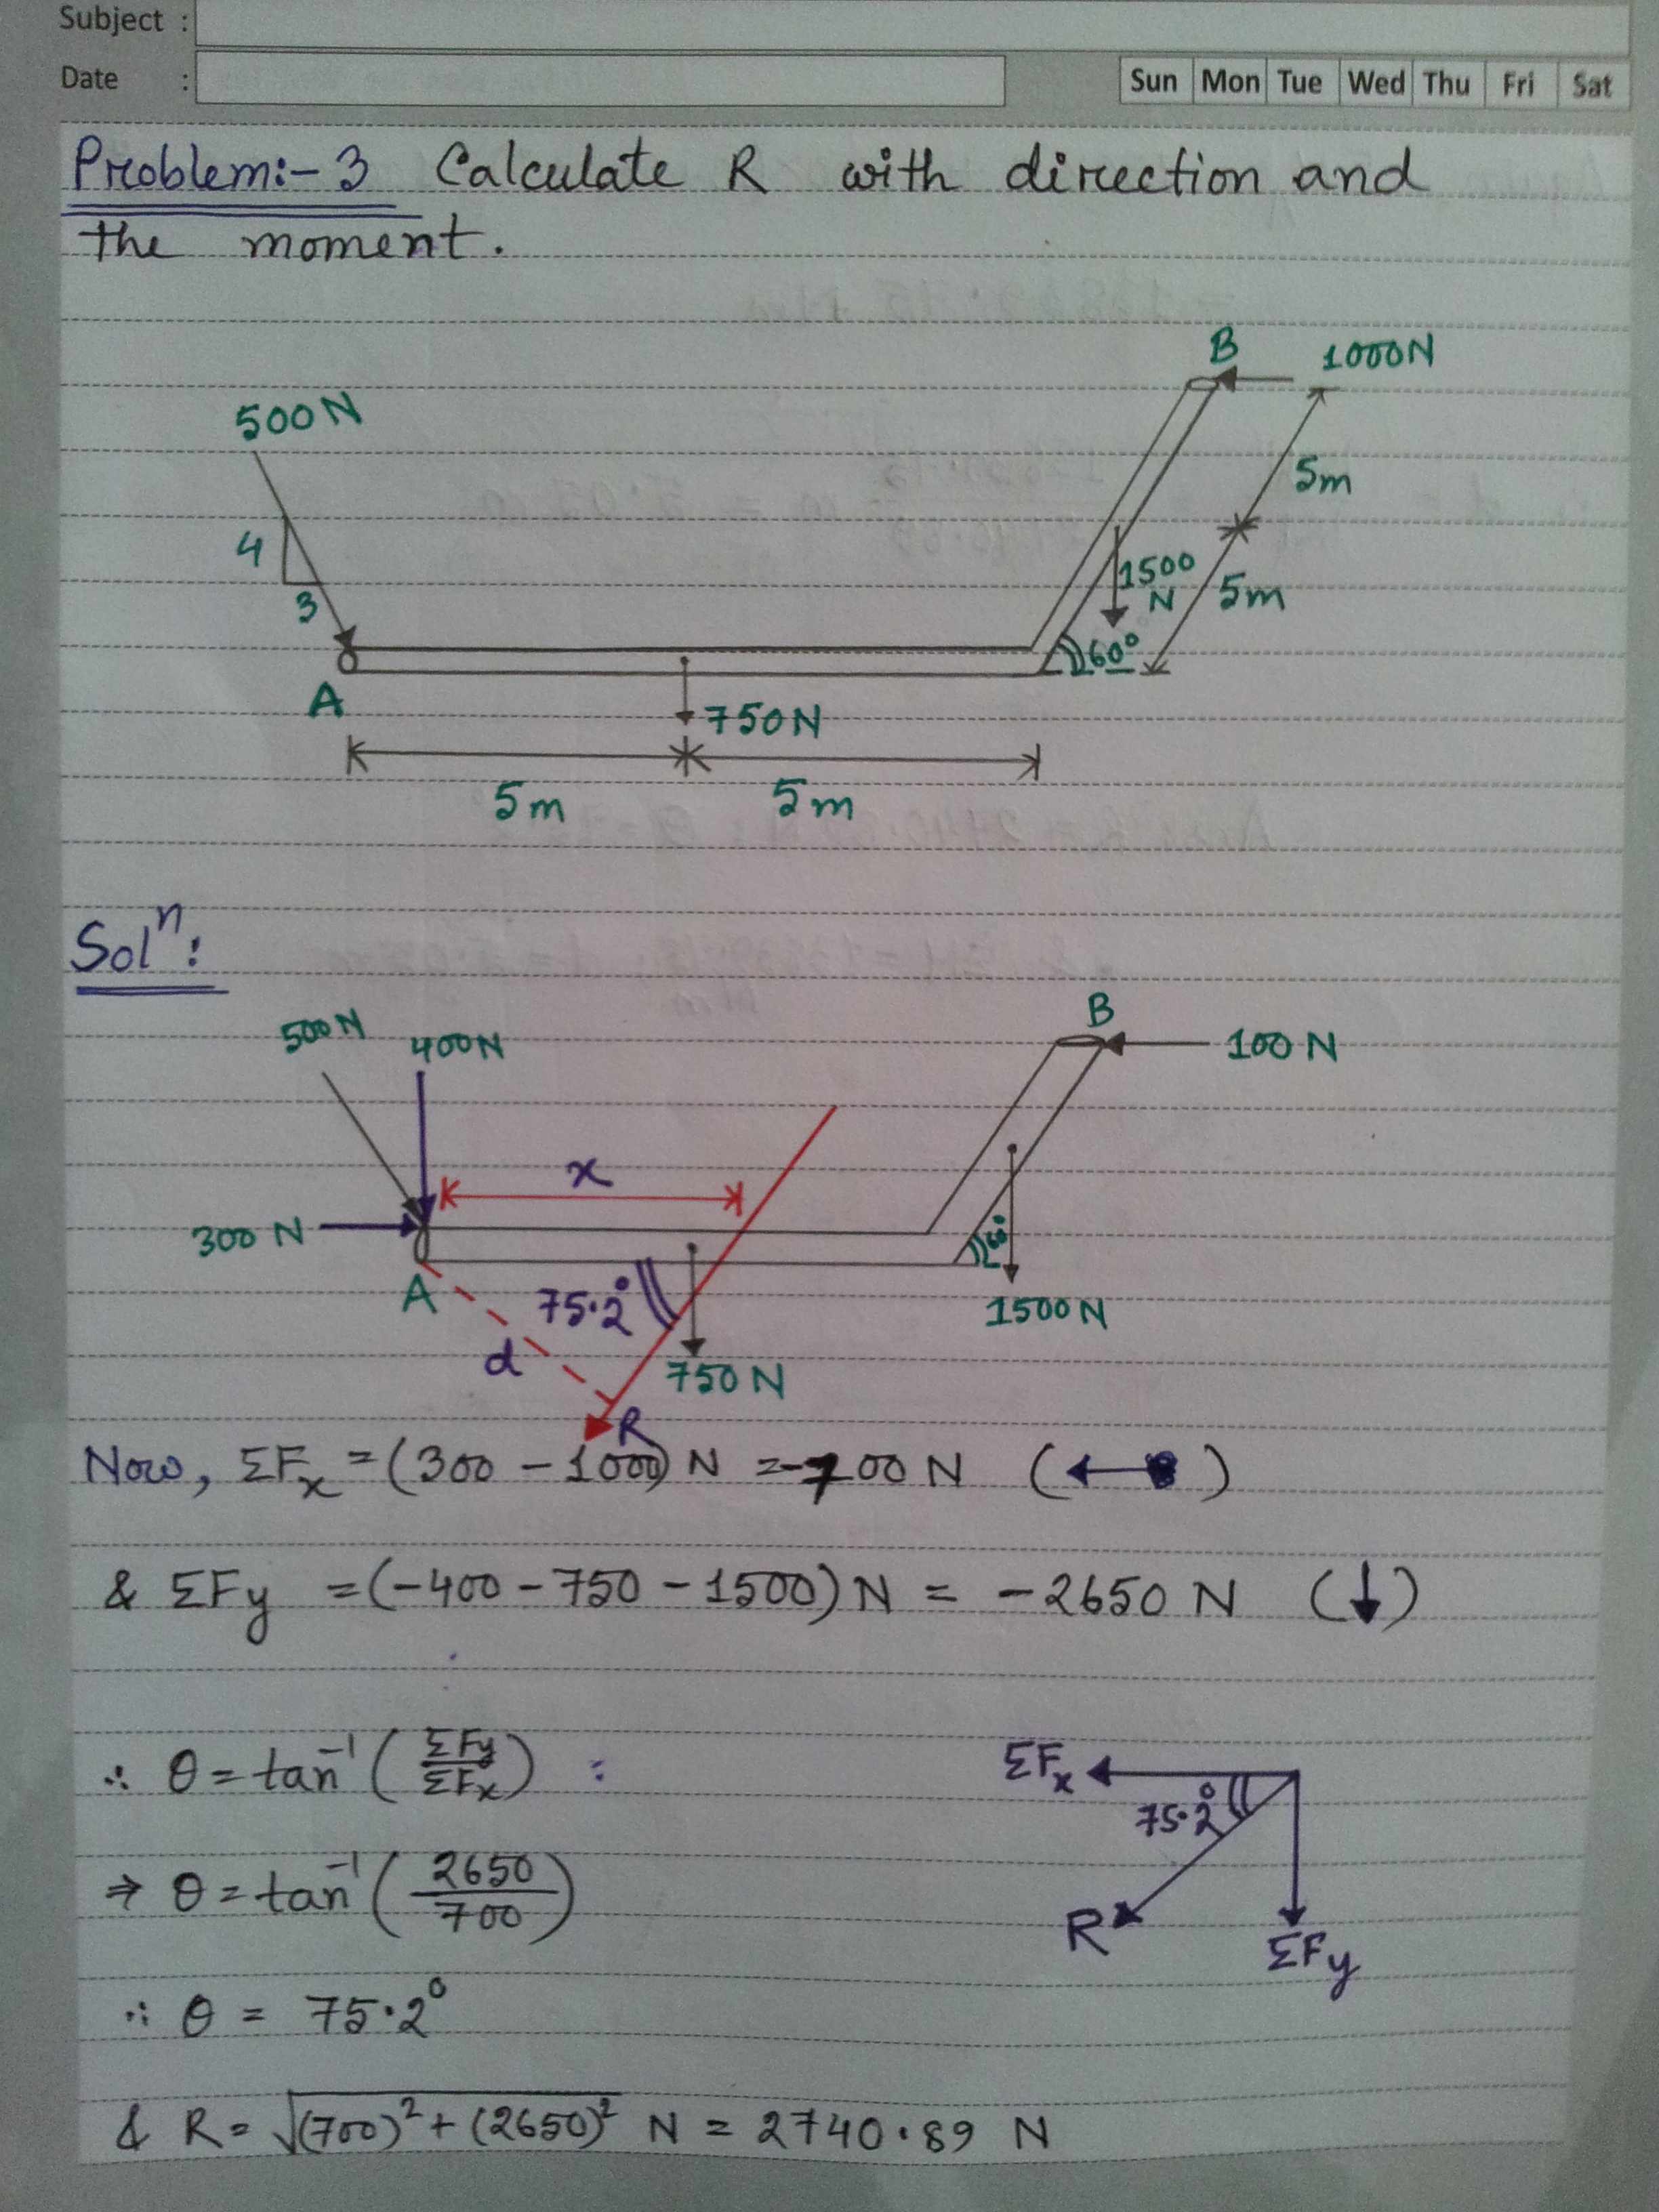 Subject :
Date :
Sun Mon Tue Wed Thu Fri Sat
Problem:- 3 Calculate R with direction and
the moment.
B
1000N
500N
5m
4
3
1500
N
5m
60°
A
750N
5m 5m
Solⁿ:
B
500N
400N
100 N
x
300 N
60°
A
75.2°
1500N
d
750 N
R
Now, ΣFx = (300 - 1000) N = -700 N (←)
& ΣFy = (-400 - 750 - 1500) N = - 2650 N (↓)
∴ θ = tan⁻¹ (ΣFy/ΣFx) :
ΣFx
75.2°
⇒ θ = tan⁻¹ (2650/700)
R
ΣFy
∴ θ = 75.2°
& R = √(700)² + (2650)² N = 2740.89 N